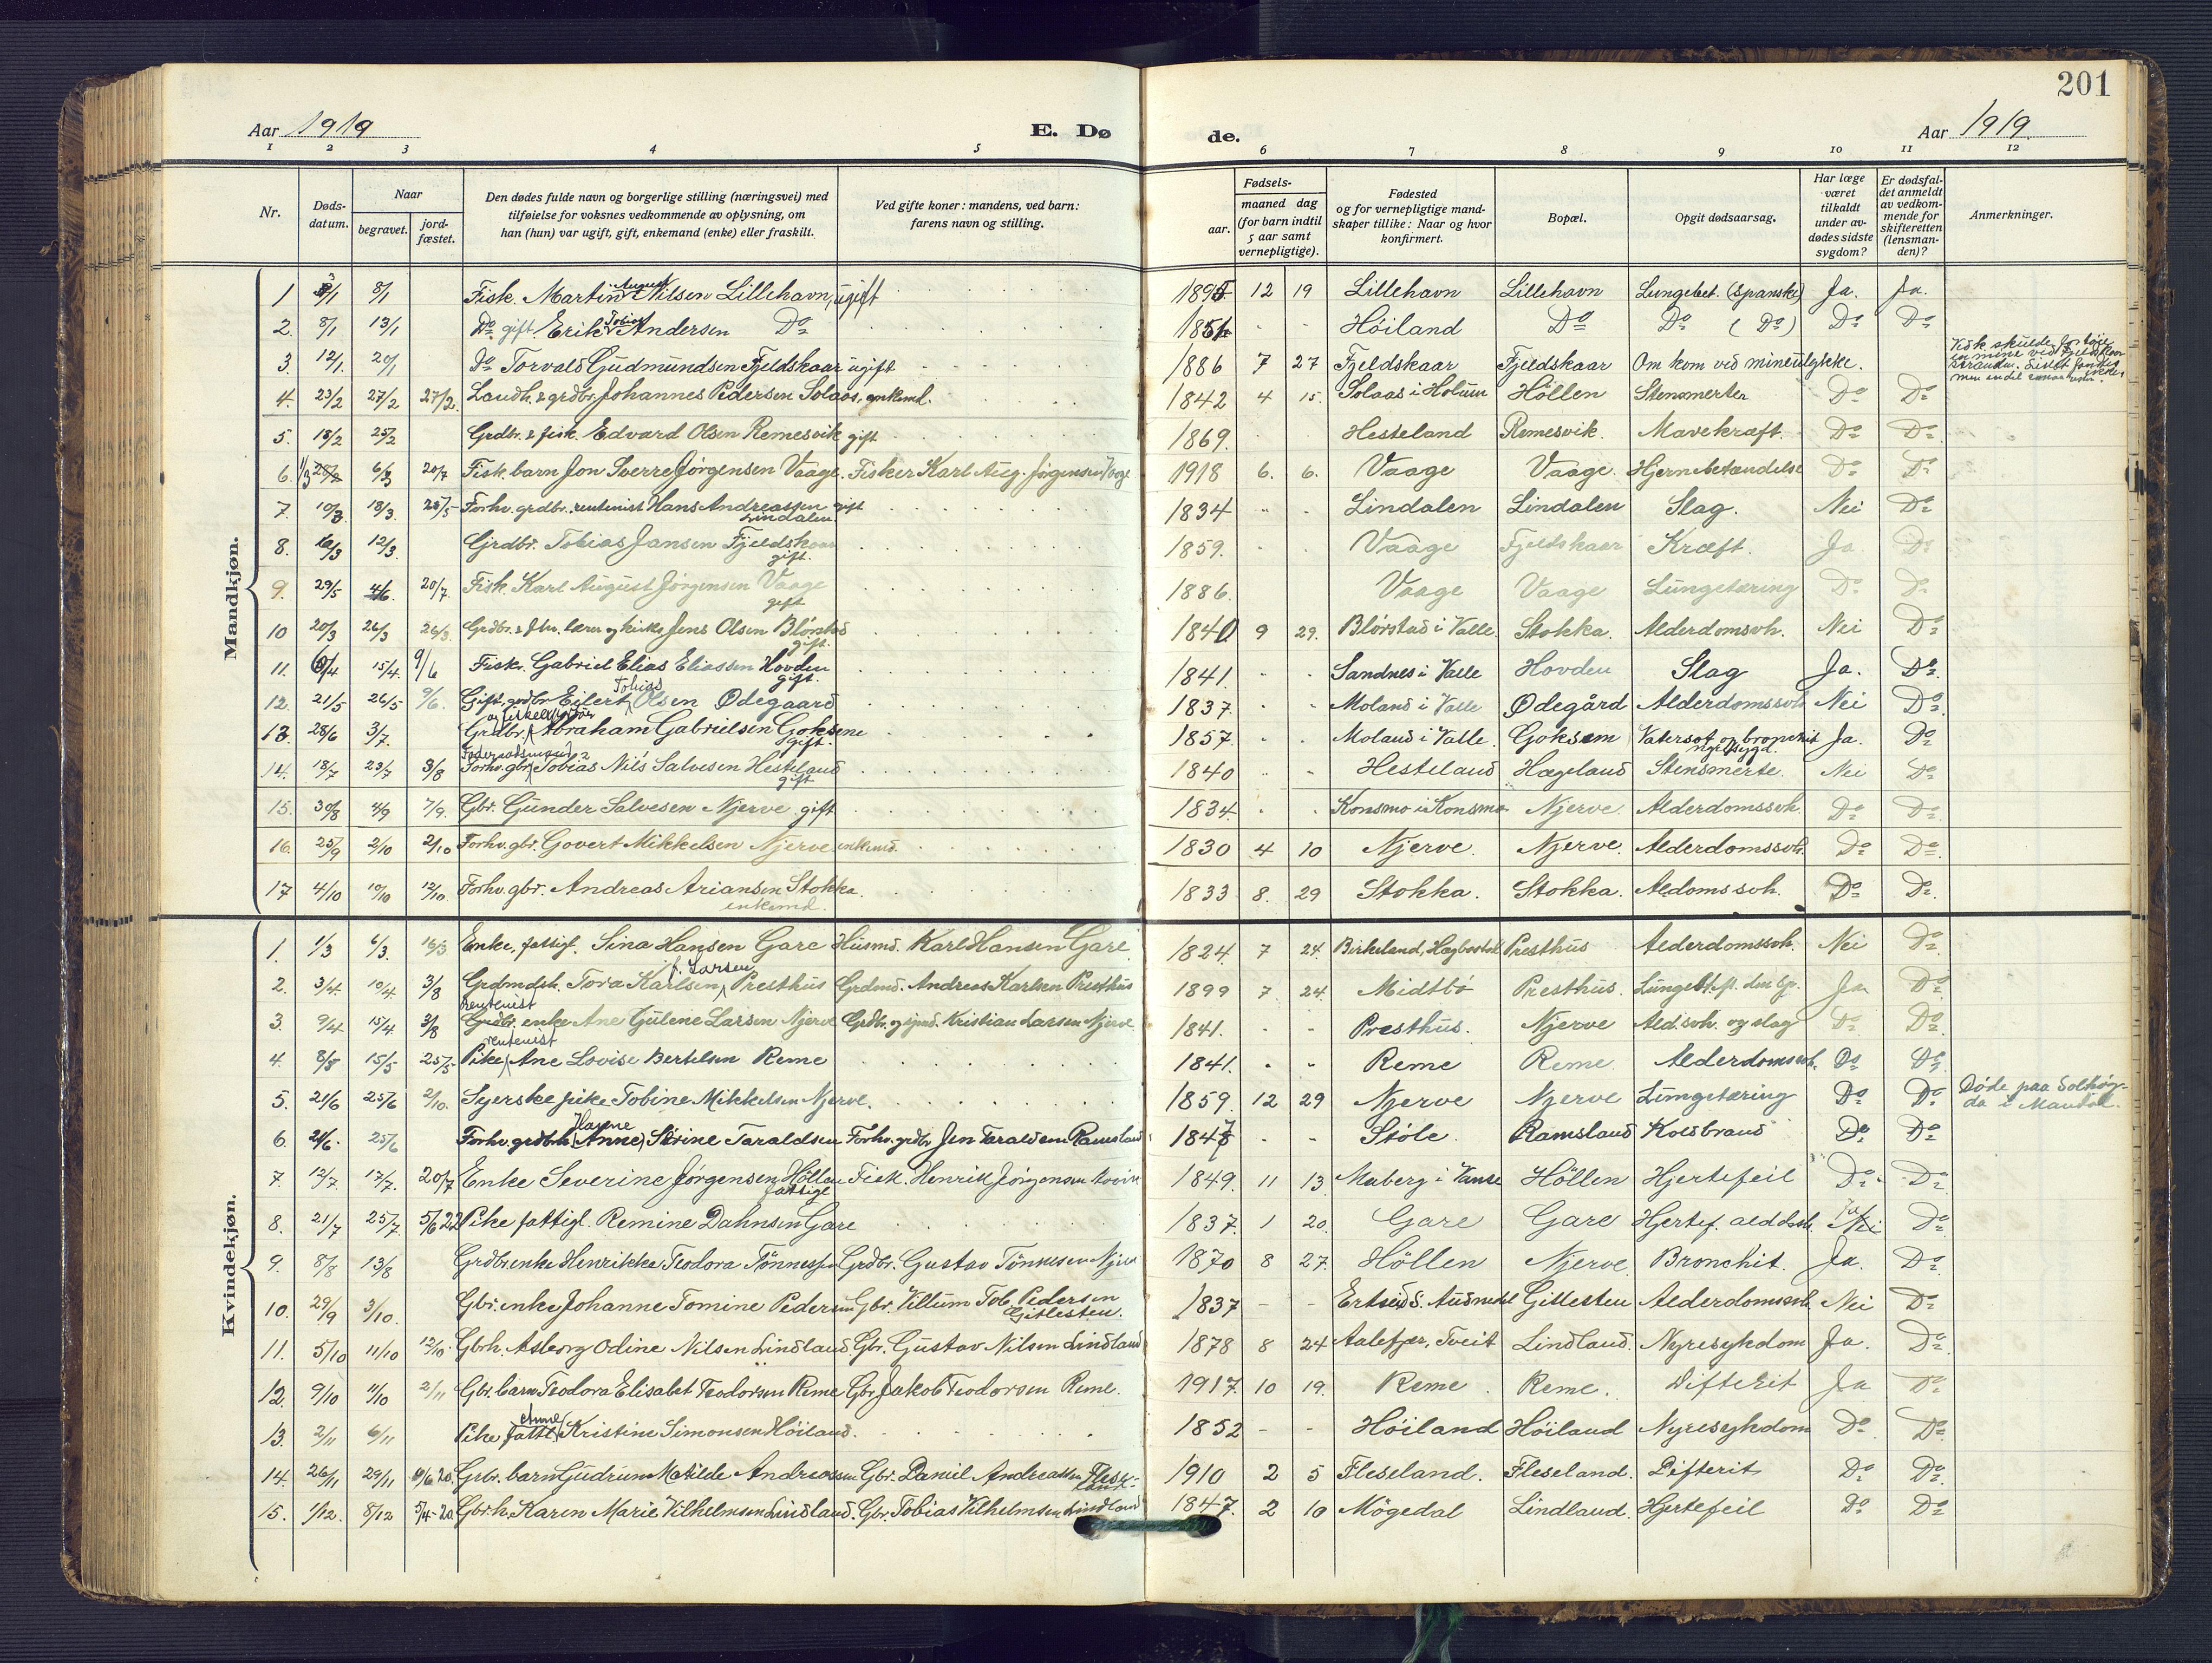 201
Aar 1919 E. Dø de. Aar 1919.
1 2 3 4 5 6 7 8 9 10 11 12
Nr. Døds-datum. Naar begravet. jord-fæstet. Den dødes fulde navn og borgerlige stilling (næringsvei) med tilføielse for voksnes vedkommende av oplysning, om han (hun) var ugift, gift, enkemand (enke) eller fraskilt. Ved gifte koner: mandens, ved barn: farens navn og stilling. Fødsels- aar. maaned dag (for barn indtil 5 aar samt vernepligtige). Fødested og for vernepligtige mand-skaper tillike: Naar og hvor konfirmert. Bopæl. Opgit dødsaarsag. Har læge været tilkaldt under av-dødes sidste sygdom? Er dødsfal-det anmeldt av vedkom-mende for skifteretten (lensman-den)? Anmerkninger.
Mandkjøn.
1 3/1 8/1 Fisk. Martin August Nilsen Lillehavn, ugift 1895 12 19 Lillehavn Lillehavn Lungebet. (Spanske) Ja. Ja.
2. 8/1 13/1 Do gift Erik Tobias Andersen Do 1854 - - Höiland Do Do (Do) Do Do
3. 12/1. 20/1 Do Torvald Gudmundsen Fjeldskaar ugift 1886 7 27 Fjeldskaar Fjeldskaar Om kom ved mineulykke. en mine ved Fjeldskaar
4. 23/2 27/2 27/2. Landh. & grdbr. Johannes Pedersen Solaas, enkemd. 1842 4 15. Solaas i Holum Höllen Stensmerter Do Do
5. 18/2 25/2 Grdbr. & fisk. Edvard Olsen Remesvik gift 1869. Hesteland Remesvik. Mavekræft. Do Do
6. 1/3 6/3 20/7 Fisk. barn Jon Sverre Jørgensen Vaage. Fisker Karl Aug. Jørgensen Vaage 1918 6. 6. Vaage Vaage. Hjernebetændelse Do Do
7. 10/3 18/3. 25/5 Forhv. grdbr. rentenist Hans Andreassen Lindalen gift 1834 - - Lindalen Lindalen Slag. Nei Do
8. 10/3 12/3. Gjrdbr. Tobias Jansen Fjeldskaar gift. 1859. - - Vaage Fjeldskaar Kræft. Ja Do
9. 29/5 4/6. 20/7. Fisk. Karl August Jørgensen Vaage gift 1886. Vaage Vaage Lungetæring Do Do
10 20/3 26/3 26/3. Grdbr. & fhv. lærer og kirks. Jens Olsen Blörstad gift. 1840 9 29. Blörstad i Valle. Stokka. Alderdomssvh. Nei Do
11. 6/4 15/4. 9/6 Fisk. Gabriel Elias Eliassen Hovden gift. 1841. - - Sandnes i Valle Hovden Slag Ja. Do
12. 21/5 26/5 9/6. Gift. grdbr. Eilert Tobias Olsen Ødegaard 1837. - - Moland i Valle Ødegård Alderdomssvh Nei Do
13. 28/6 3/7. Grdbr. Abraham Gabrielsen Goksem gift. 1857. - - Moland i Valle. Goksem Vatersot og bronchit Ja. Do
14. 18/7 23/7 3/8 Forhv. gbr. Tobias Nils Salvesen Hesteland gift 1840 - - Hesteland Hægeland Stensmerte. Nei Do
15. 30/8 4/9 7/9. Gbr. Gunder Salvesen Njerve. gift 1834. - - Konsmo i Konsmo Njerve. Alderdomssvh. Do Do
16. 25/9 2/10 2/10 Forhv. gbr. Govert Mikkelsen Njerve enkemd. 1830 4 10 Njerve. Njerve. Alderdomssvh. Do Do
17 4/10 10/10 12/10 Forhv. gbr. Andreas Ariansen Stokka. enkemd. 1833 8. 29 Stokka. Stokka. Aldomssvh. Do Do
Kvindekjøn.
1. 1/3 6/3. 16/3 Enke, fattigl. Sina Hansen Gare Husmd. Karl Hansen Gare 1824. 7 24. Birkeland, Hægbostad Presthus Alderdomssvh. Nei Do
2. 3/4. 10/4. 3/8 Grdmdsh. Tora Karlsen f. Larsen Presthus Grdmd. Andreas Karlsen Presthus 1899 7 24. Midtbö Presthus. Ja Do
3. 9/4 15/4 3/8 rentenist Grdbr. enke Ane Gulene Larsen Njerve Grdbr. og sjmd. Kristian Larsen Njerve 1841. - - Presthus. Njerve Ald. svh. og slag Do Do
4. 15/5 25/5 Pike rentenist Ane Lovise Bertelsen Reme 1841. - - Reme Reme. Alderdomssvh. Do Do
5. 21/6 25/6 2/10. Syerske pike Tobine Mikkelsen Njerve. 1859. 12 29 Njerve Njerve Lungetæring Do Do Döde paa Solhög-da i Mandal.
6. 21/6. 25/6 Forhv. grdbrh. Hanne (Anne) Sörine Taraldsen Forhv. grdbr. Jen Taraldsen Ramsland 1847 - - Stöle. Ramsland Koldbrand Do Do
7. 12/7 17/7. 20/7 Enke Severine Jørgensen Höllen fattigl Fisk. Henrik Jørgensen 1849. 11 13. Maberg i Vanse Höllen Hjertefeil Do Do
8. 21/7 25/7 5/6 22 Pike fattigl. Remine Dahnsen Gare 1837. 1 20. Gare Gare Hjertef. Ja Nei Do
9. 8/8 13/8 Grdbr. enke Henrikke Teodora Tönnessen Grdbr. Gustav Tönnesen Njerve 1870 8 27. Höllen Njerve. Bronchit. Ja. Do
10. 29/9 3/10. Gbr. enke Johanne Tomine Pedersen Gbr. Villum Tob. Pedersen Gitlesten. 1837 - - Ertseid S. Audnedal Gitlesten Alderdomssvh. Nei Do
11. 5/10 11/10 12/10. Gbrh. Asborg Odine Nilsen Lindland. Gbr. Gustav Nilsen Lindland 1878 8 24 Aalefjær, Tveit Lindland. Nyresykdom Ja. Do
12. 9/10 11/10 2/11 Gbr. barn Teodora Elisabet Teodorsen Reme Gbr. Jakob Teodorsen Reme. 1917. 10 19. Reme. Reme. Difterit Ja Do
13. 2/11 6/11 Pike fattl. Anne Kristine Simonsen Höiland. 1852 - - Höiland Höiland Nyresykdom Do Do
14. 26/11 29/11 6/6 20. Grbr. barn Gudrun Matilde Andreassen Gbr. Daniel Andreassen Flese-land. 1910 2 5 Fleseland. Fleseland. Difterit Do Do
15. 1/12. 8/12 5/4-20. Gbrh. Karen Marie Vilhelmsen Lindland. Gbr. Tobias Vilhelmsen Lindland 1847. 2 10 Mögedal Lindland. Hjertefeil Do Do